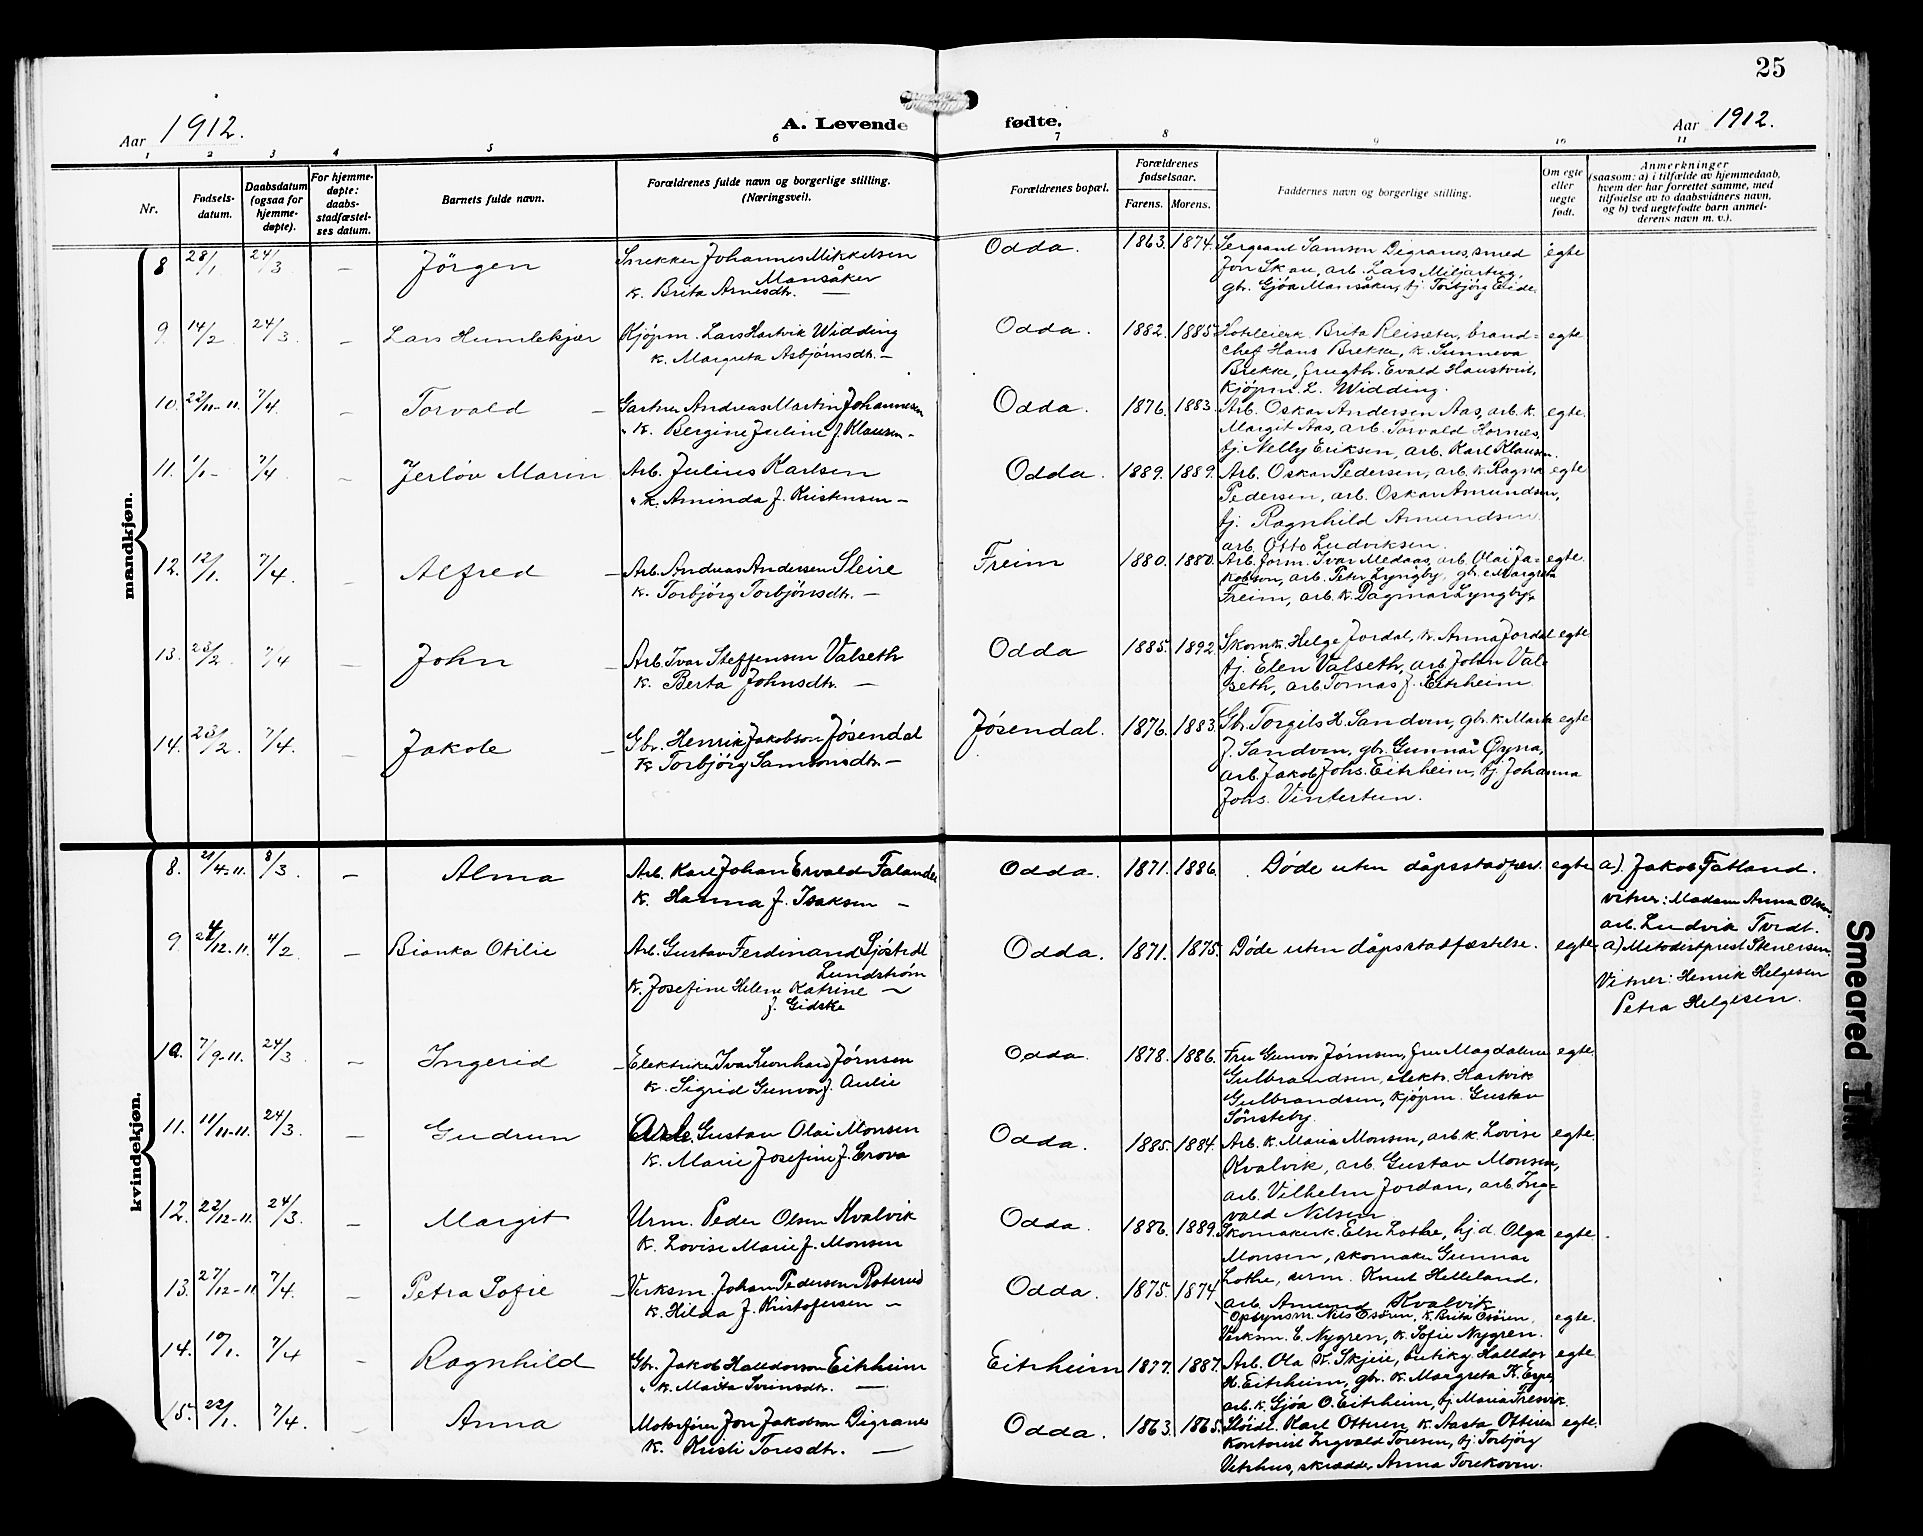 25
Aar 1912.
A. Levende fødte.
Aar 1912.
1 2 3 4 5 6 7 8 9 10 11
Nr.
Fødsels-
datum.
Daabsdatum
(ogsaa for
hjemme-
døpte).
For hjemme-
døpte:
daabs-
stadfæstel-
ses datum.
Barnets fulde navn.
Forældrenes fulde navn og borgerlige stilling.
(Næringsvei).
Forældrenes bopæl.
Forældrenes
fødselsaar.
Farens. Morens.
Faddernes navn og borgerlige stilling.
Om egte
eller
uegte
født.
Anmerkninger
(saasom: a) i tilfælde av hjemmedaab,
hvem der har forrettet samme, med
tilføielse av to daabsvidners navn,
og b) ved uegtefødte barn anmel-
derens navn m. v.).
mandkjøn.
8 28/1 24/3 – Jörgen
Snekker Johannes Mikkelsen
Mansåker
k. Brita Arnesdtr. —
Odda. 1863. 1874.
Sergeant Samson Digranes, smed
Jon Skau, arb. Lars Miljarteig,
gbr. Gjöa Mansåker, tj. Torbjörg Eide
egte
9. 14/2 24/3 – Lars Humlekjær
Kjøpm. Lars Hartvik Widding
k. Margreta Asbjørnsdtr. –
Odda. 1882. 1885.
Hoteleierk. Brita Reisæter, brand-
chef Hans Brekke, k. Sunneva
Brekke, frugth. Evald Haustveit,
kjøpm. L. Widding.
egte
10. 22/11-11. 7/4. – Torvald –
Gartner Andreas Martin Johannesen
" k. Bergine Juline f. Klausen –
Odda. 1876. 1883.
Arb. Oskar Andersen Aas, arb. k.
Margit Aas, arb. Torvald Hornes,
tj. Nelly Eriksen, arb. Karl Klausen.
egte.
11. 1/1 – 7/4. – Jerlöv Marin
Arb. Julius Karlsen
" k. Aminda f. Kristensen –
Odda. 1889. 1889.
Arb. Oskar Pedersen, arb. k. Ragna
Pedersen, arb. Oskar Amundsen,
tj. Ragnhild Amundsen
arb. Otto Ludviksen.
egte
12. 12/1. 7/4. – Alfred –
Arb. Andreas Andersen Sleire
k. Torbjörg Torbjörnsdtr. –
Freim 1880. 1880.
Arb.form. Ivar Medaas, arb. Olai Ja-
kobson, arb. Peter Lyngby, gbr. Margreta
Freim, arb. k. Dagmar Lyngby.
egte.
13. 23/2. 7/4 – John –
Arb. Ivar Steffensen Valseth
k. Berta Johnsdtr. –
Odda 1885. 1892.
Skomk. Helge Jordal, k. Anna Jordal
tj. Elen Valseth, arb. John Val-
seth, arb. Tomas J. Eitrheim.
egte
14. 23/2. 7/4. – Jakob –
Gbr. Henrik Jakobson Jösendal
k. Torbjörg Samsonsdtr. –
Jösendal. 1876. 1883.
Gbr. Torgils H. Sandven, gbr. k. Marta
J. Sandven, gbr. Gunnar Øyna,
arb. Jakob Johs. Eitrheim, tj. Johanna
Johs. Vintertun.
egte
kvindekjøn.
8. 21/4-11. 8/3. – Alma
Arb. Karl Johan Ervald Falander
k. Hanna f. Isaksen –
Odda. 1871. 1886.
Døde uten dåpsstadfæst.
egte
a). Jakob Fatland.
vitner: Madam Anna Olsen,
arb. Ludvik Tvedt.
9. 24/12-11. 4/2 – Bianka Otilie
Arb. Gustav Ferdinand Sjöstedt
Lundström
k. Josefine Helene Katrine –
f. Gidske
Odda. 1871. 1875.
Døde uten dåpsstadfæstelse.
egte
a) Metodistprest Stenersen.
Vitner: Henrik Helgesen
Petra Helgesen.
10. 7/9-11. 24/3 – Ingerid –
Elektriker Ivar Leonhard Jörnsen
k. Sigrid Gunvor f. Aulie
Odda. 1878. 1886.
Fru Gunvor Jörnsen, fru Magdalene
Gulbrandsen, elektr. Hartvik
Gulbrandsen, kjøpm. Gustav
Sönsteby.
egte.
11. 11/11-11. 24/3. – Gudrun
Arb. Gustav Olai Monsen
k. Marie Josefine f. Grova
Odda. 1885. 1884.
Arb. k. Maria Monsen, arb. k. Lovise
Kvalvik, arb. Gustav Monsen,
arb. Vilhelm Jordan, arb. Ing-
vald Nilsen
egte.
12. 22/12-11. 24/3. – Margit
Urm. Peder Olsen Kvalvik
k. Lovise Marie f. Monsen
Odda. 1886. 1889.
Skomakerk. Else Lothe, hj.d. Olga
Monsen, skomaker Gunnar
Lothe, urm. Knut Helleland,
arb. Amund Kvalvik
egte.
13. 27/12-11 7/4. – Petra Sofie –
Verksm. Johan Pedersen Roterud
k. Hilda f. Kristofersen –
Odda. 1875. 1874
Opsynsm. Nils Esören, k. Brita Esören,
Verksm. C. Nygren, k. Sofie Nygren.
egte.
14. 10/1. 7/4 – Ragnhild
Gbr. Jakob Halldorson Eitrheim
" k. Marta Sveinsdtr. —
Eitrheim 1877. 1887.
Arb. Ola W. Skjeie, butiky. Halldor
H. Eitrheim, gbr. k. Margreta K. Espe,
arb. k. Gjöa O. Eitrheim, tj. Maria Tresvik.
egte
15. 22/1. 7/4. – Anna
Motorfører Jon Jakobson Digranes
k. Kristi Toresdtr. —
Odda. 1863. 1865.
Slöidl. Karl Ottesen, k. Aasta Ottesen
kontorist Ingvald Toresen, tj. Torbjörg
Vetrhus, skrædder Anna Torekoven.
egte.
Smeared Ink